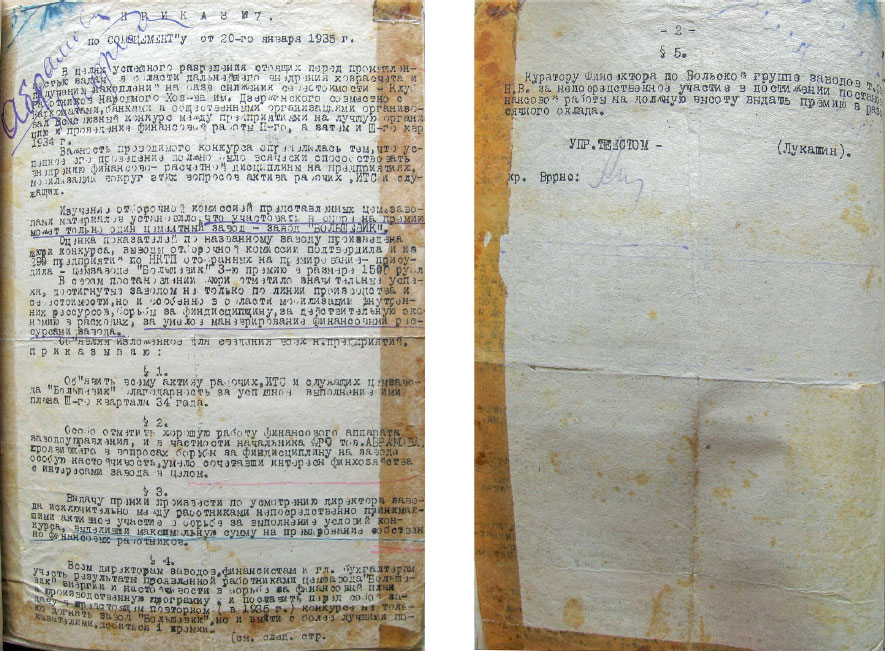 П Р И К А З № 7.
по СОЮЗЦЕМЕНТ"у от 20-го января 1935 г.
Абрамов
В целях успешного разрешения стоящих перед промышлен-
ностью задач в области дальнейшего внедрения хозрасчета и
получения накоплений на базе снижения себестоимости - Клуб
работников Народного Хоз-ва им. Дзержинского совместно с
наркоматами, банками и общественными организациями организо-
вал Всесоюзный конкурс между предприятиями на лучшую органи
цию и проведение финансовой работы П-го, а затем и Ш-го квар
1934 г.
Важность проводимого конкурса определялась тем, что ус-
пешное его проведение должно было всячески способствовать
внедрению финансово-расчетной дисциплины на предприятиях,
мобилизации вокруг этих вопросов актива рабочих, ИТС и слу-
жащих.
Изучение отборочной комиссией представленных цем.заво-
дами материалов установило, что участвовать в конкурсе на премию
может только один цементный завод - завод "БОЛЬШЕВИК".
Оценка показателей по названному заводу произведена
жюри конкурса, выводы отборочной комиссии подтвердила и из
299 предприятий по НКТП отобранных на премирование-прису-
дила - цемзаводу "Большевик" 3-ю премию в размере 1500 рубл
В своем постановлении жюри отметило значительные успе-
хи, достигнутые заводом не только по линии производства и
себестоимости, но и особенно в области мобилизации внутрен-
них ресурсов, борьбы за финдисциплину, за действительную эко-
номию в расходах, за умелое маневрирование финансовыми рес-
сурсами завода.
Об"являя изложенное для сведения всех н.предприятий,
п р и к а з ы в а ю :
§ 1.
Об"явить всему активу рабочих, ИТС и служащих цемзаво-
да "Большевик" благодарность за успешное выполнение ими
плана Ш-го квартала 34 года.
§ 2.
Особо отметить хорошую работу финансового аппарата
заводоуправления, и в частности начальника ФРО тов. АБРАМОВА,
проявившего в вопросах борьбы за финдисциплину на заводе
особую настойчивость, умело сочетавший интересы финхозяйства
с интересами завода в целом.
§ 3.
Выдачу премии произвести по усмотрению директора заво-
да исключительно между работниками непосредственно принимав-
шими активное участие в борьбе за выполнение условий кон-
курса, выделивши максимальную сумму на премирование собствен
но финансовых работников.
§ 4.
Всем директорам заводов, финансистам и гл. бухгалтерам
учесть результаты проявленной работниками цемзавода "Больше-
вик" энергии и настойчивости в борьбе за финансовый план
и производственную программу, и поставить перед собой за-
дачу в предстоящем повторном ( в 1935 г.) конкурсе не толь-
ко догнать завод "Большевик", но и выйти с более лучшими по-
казателями, добиться 1 премии.
(см. след. стр.
- 2 -
§ 5.
Куратору Финсектора по Вольской группе заводов т.
Н.В. за непосредственное участие в постижении постано
нансовой работы на должную высоту выдать премию в раз
сячного оклада.
УПР. ТРЕСТОМ - (Лукашин).
Вррно: